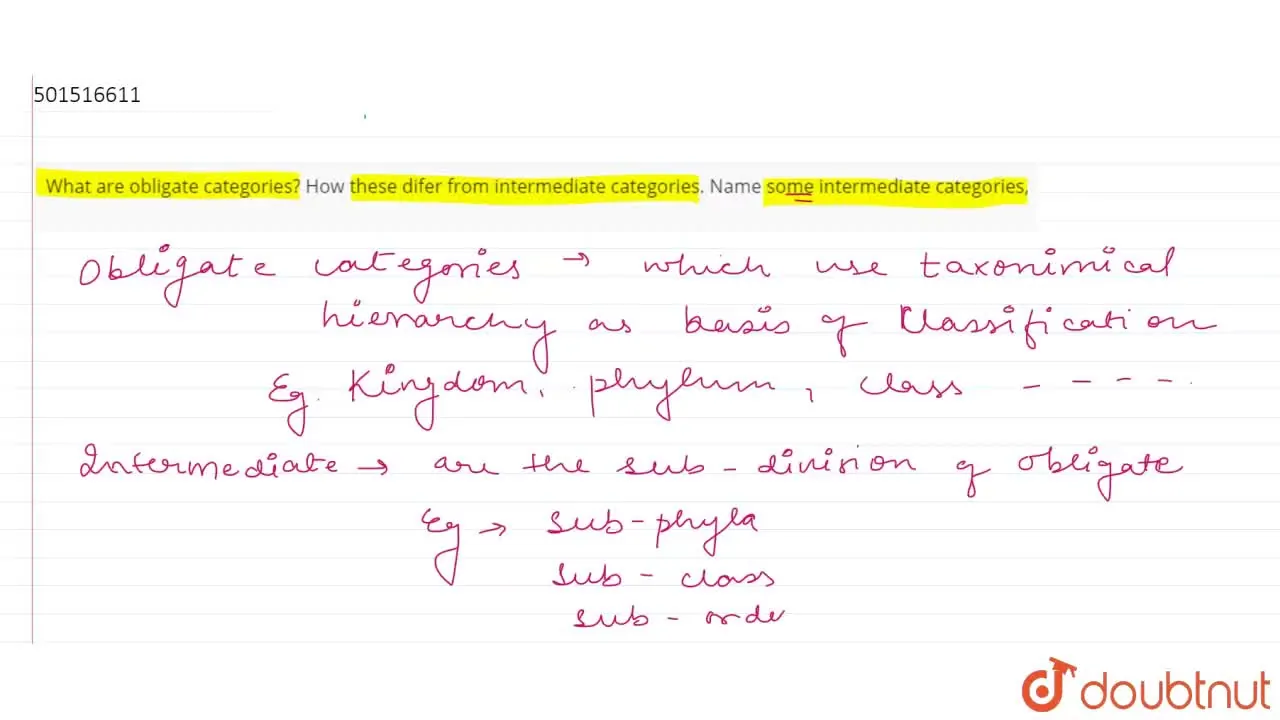 501516611
What are obligate categories? How these difer from intermediate categories. Name some intermediate categories,
Obligate categories → which use taxonimical
hierarchy as basis of Classification
Eg. Kingdom, phylum, class - - - -
Intermediate → are the sub-division of obligate
Eg → Sub-phyla
Sub - class
Sub - orde
doubtnut